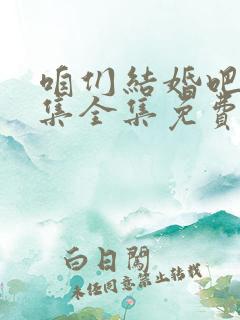 咱们結婚吧
集全集免費
白日闖
未经同意禁止转载